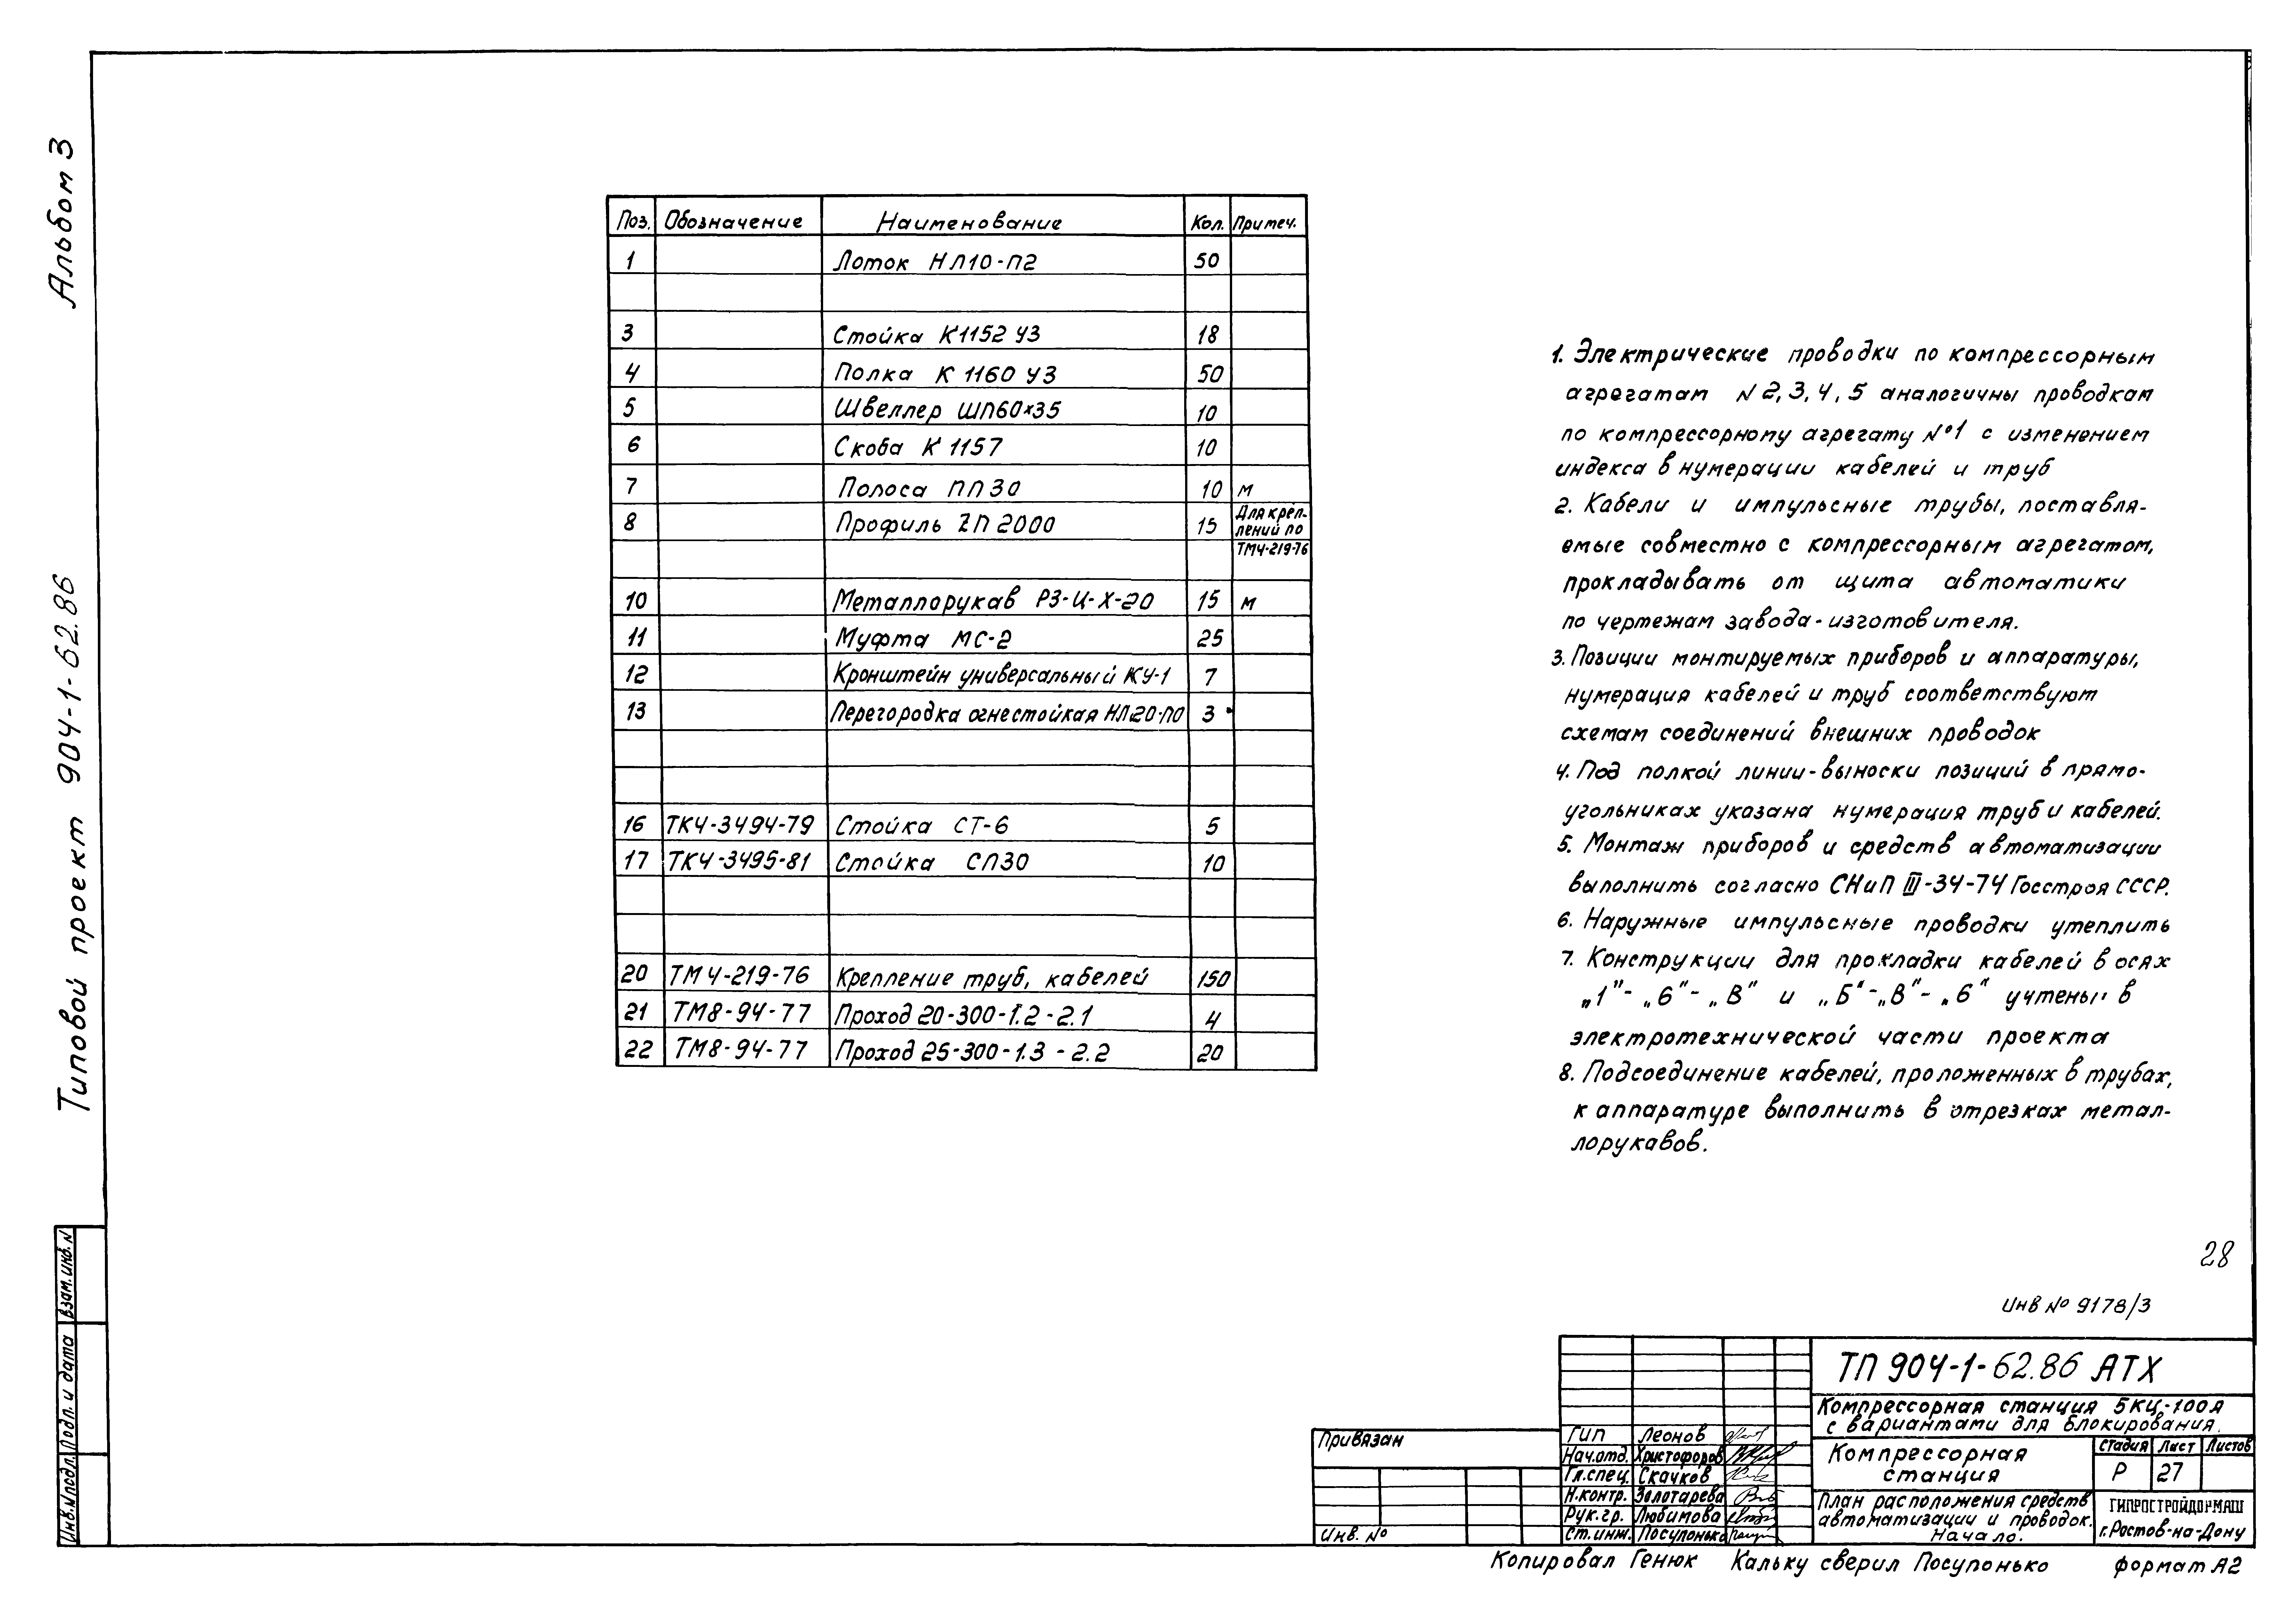 Альбом 3
Типовой проект 904-1-62.86
Поз. Обозначение Наименование Кол. Примеч.
1 Лоток НЛ10-П2 50
3 Стойка К1152 У3 18
4 Полка К 1160 У3 50
5 Швеллер ШП60х35 10
6 Скоба К 1157 10
7 Полоса ПП30 10 м
8 Профиль ZП 2000 15 Для креп-
лений по
ТМ4-219-76
10 Металлорукав РЗ-Ц-Х-20 15 м
11 Муфта МС-2 25
12 Кронштейн универсальный КУ-1 7
13 Перегородка огнестойкая НЛ20-П0 3
16 ТК4-3494-79 Стойка СТ-6 5
17 ТК4-3495-81 Стойка СП30 10
20 ТМ4-219-76 Крепление труб, кабелей 150
21 ТМ8-94-77 Проход 20-300-1.2-2.1 4
22 ТМ8-94-77 Проход 25-300-1.3-2.2 20
1. Электрические проводки по компрессорным
агрегатам N 2, 3, 4, 5 аналогичны проводкам
по компрессорному агрегату №1 с изменением
индекса в нумерации кабелей и труб
2. Кабели и импульсные трубы, поставля-
емые совместно с компрессорным агрегатом,
прокладывать от щита автоматики
по чертежам завода-изготовителя.
3. Позиции монтируемых приборов и аппаратуры,
нумерация кабелей и труб соответствуют
схемам соединений внешних проводок
4. Под полкой линии-выноски позиций в прямо-
угольниках указана нумерация труб и кабелей.
5. Монтаж приборов и средств автоматизации
выполнить согласно СНиП III-34-74 Госстроя СССР.
6. Наружные импульсные проводки утеплить
7. Конструкции для прокладки кабелей в осях
„1"- „6"- „В" и „Б"-„В"- „6" учтены в
электротехнической части проекта
8. Подсоединение кабелей, проложенных в трубах,
к аппаратуре выполнить в отрезках метал-
лорукавов.
28
Инв № 9178/3
ТП 904-1-62.86 АТХ
Компрессорная станция 5КЦ-100А
с вариантами для блокирования.
Компрессорная
станция
Стадия Лист Листов
Р 27
План расположения средств
автоматизации и проводок.
Начало.
ГИПРОСТРОЙДОРМАШ
г. Ростов-на-Дону
ГИП Леонов
Нач.отд. Христофоров
Гл.спец. Скачков
Н.контр. Золотарева
Рук.гр. Любимова
Ст.инж. Посупонько
Привязан
Инв. №
Взам. инв. N
Подп. и дата
Инв.№подл.
Копировал Генюк Кальку сверил Посупонько формат А2